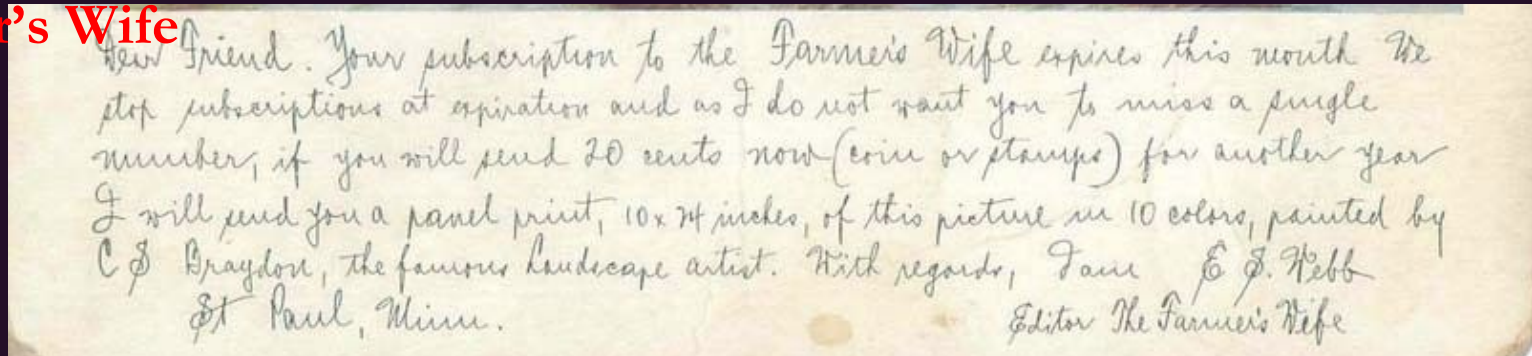 r's Wife
Dear Friend. Your subscription to the Farmer's Wife expires this month We
stop subscriptions at expiration and as I do not want you to miss a single
number, if you will send 20 cents now (coin or stamps) for another year
I will send you a panel print, 10 x 24 inches, of this picture in 10 colors, painted by
C S Braydon, the famous Landscape artist. With regards, I am E S. Webb
St Paul, Minn. Editor The Farmer's Wife